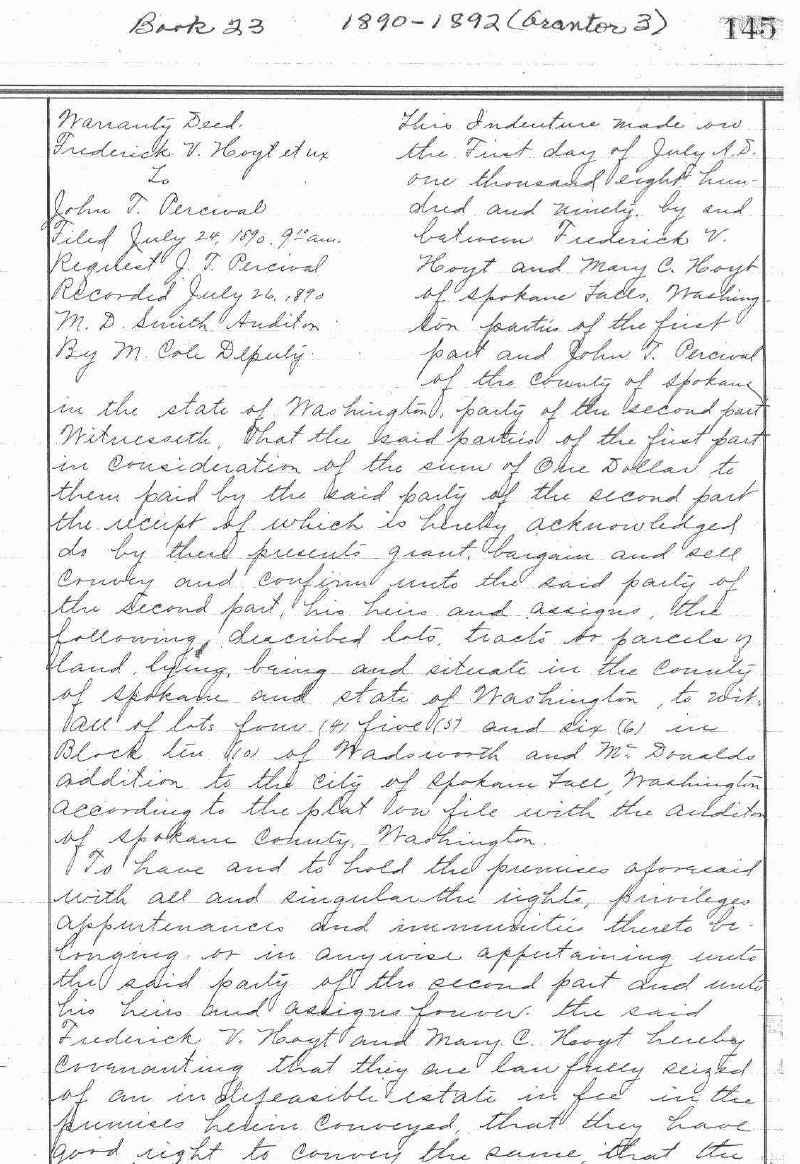 Book 23 1890-1892 (Grantor 3) 145
Warranty Deed.
Frederick V. Hoyt et ux
To
John T. Percival
Filed July 24, 1890. 9 00 am.
Request J. T. Percival
Recorded July 26, 1890
M. D. Smith Auditor
By M. Cole Deputy.
This Indenture made on
the First day of July A.D.
one thousand eight hun-
dred and ninety. by and
between Frederick V.
Hoyt and Mary C. Hoyt
of Spokane Falls, Washing-
ton parties of the first
part and John T. Percival
of the county of Spokane
in the state of Washington, party of the second part
Witnesseth, that the said parties of the first part
in consideration of the sum of One Dollar to
them paid by the said party of the second part
the receipt of which is hereby acknowledged
do by these presents grant, bargain and sell
convey and confirm unto the said party of
the second part, his heirs and assigns, the
following described lots, tracts or parcels of
land, lying, being and situate in the county
of Spokane and state of Washington, to wit.
All of lots four (4) five (5) and six (6) in
Block ten (10) of Wadsworth and Mc Donalds
addition to the city of Spokane Fall, Washington
according to the plat on file with the auditor
of Spokane County, Washington.
To have and to hold the premises aforesaid
with all and singular the rights, privileges
appurtenances and immunities thereto be-
longing or in anywise appertaining unto
the said party of the second part and unto
his heirs and assigns forever. the said
Frederick V. Hoyt and Mary C. Hoyt hereby
covenanting that they are lawfully seized
of an indefeasible estate in fee in the
premises herein conveyed, that they have
good right to convey the same, that the